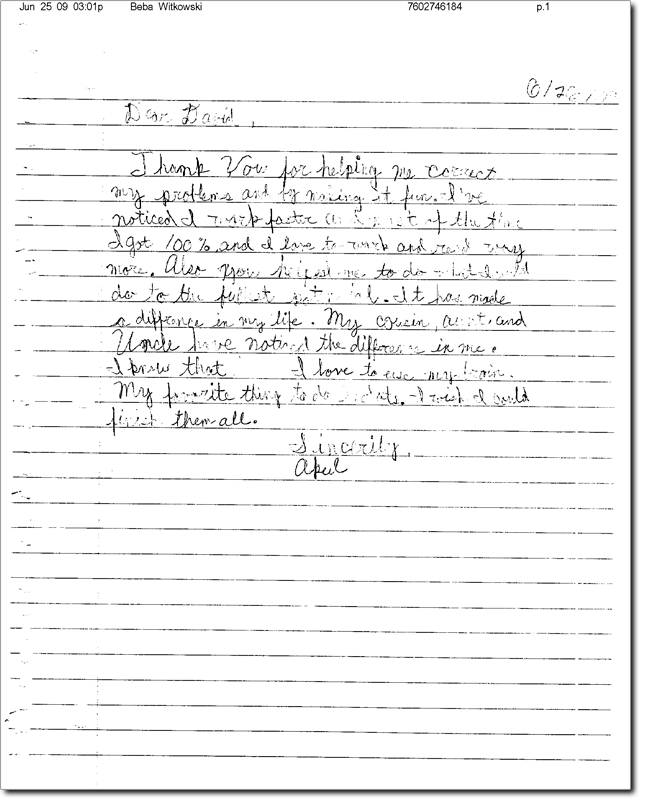 Jun 25 09 03:01p Beba Witkowski 7602746184 p.1
Dear David,
Thank You for helping me correct
my problems and by making it fun. I've
noticed I work faster and most of the time
I got 100% and I love to work and read way
more. Also you helped me to do what I could
do to the fullest potential. It has made
a diffrence in my life. My cousin, aunt and
Uncle have noticed the difference in me.
I know that I love to use my brain.
My favorite thing to do I wish I could
finish them all.
Sincerily,
April